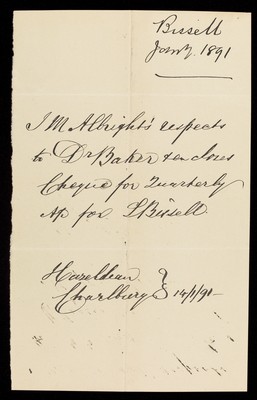 Bissell
Jany. 1891
J M Albright's respects
to Dr Baker & encloses
Cheque for Quarterly
a/c for L Bissell
Hazeldean
Charlbury 14/1/91